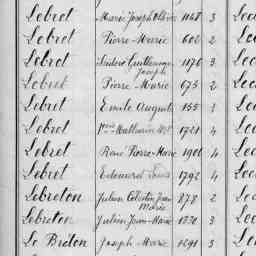 Lebret Marie Joseph 1148 3 Loc
Lebret Pierre Marie 602 2 Loc
Lebret Isidore Guillaume Joseph 1176 3 Loc
Lebret Pierre Marie 673 2 Loc
Lebret Emile Auguste 155 1 Loc
Lebret Mathurin 1721 4 Loc
Lebret René Pierre Marie 1906 4 Loc
Lebret Edouard Louis 1792 4 Loc
Lebreton Julien Célestin Jean Marie 878 2 Loc
Lebreton Julien Jean Marie 3 Loc
Le Breton Joseph Marie 1291 3 Loc